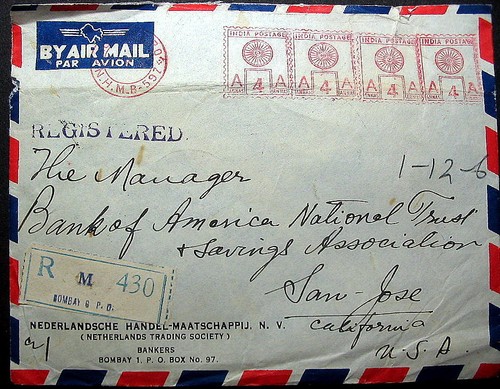 BY AIR MAIL
PAR AVION
N.H.M.B-597
INDIA POSTAGE INDIA POSTAGE INDIA POSTAGE INDIA POSTAGE
A 4 A A 4 A A 4 A A 4 A
REGISTERED.
1-12-6
The Manager
Bank of America National Trust
+ Savings Association
R M 430
BOMBAY G P. O.
San-Jose
California
U.S.A.
NEDERLANDSCHE HANDEL-MAATSCHAPPIJ, N. V.
( NETHERLANDS TRADING SOCIETY )
BANKERS
BOMBAY 1, P. O. BOX No. 97.